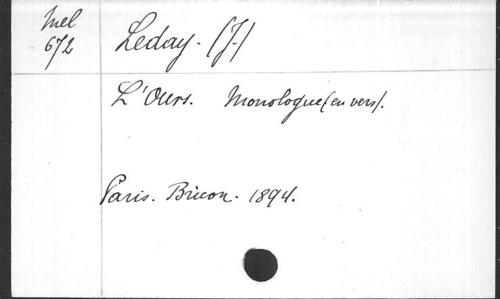 Mel
672
Leday. (J.)
L'Ours. Monologue (en vers).
Paris. Bricon. 1894.